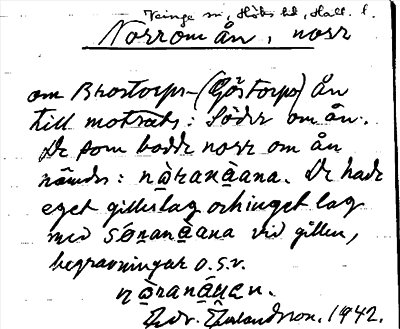 Veinge sn, Höks hd, Hall. l.
Norrom ån, norr
om Brostorps-(Göstorps) ån
till motsats: Söder om ån.
De som bodde norr om ån
nämdes: nạ̊ranạ̀ana. De hade
eget gilleslag och inget lag
med sönanạana vid gillen,
begravningar o.s.v.
nạ̊ranạ́uen.
1942.